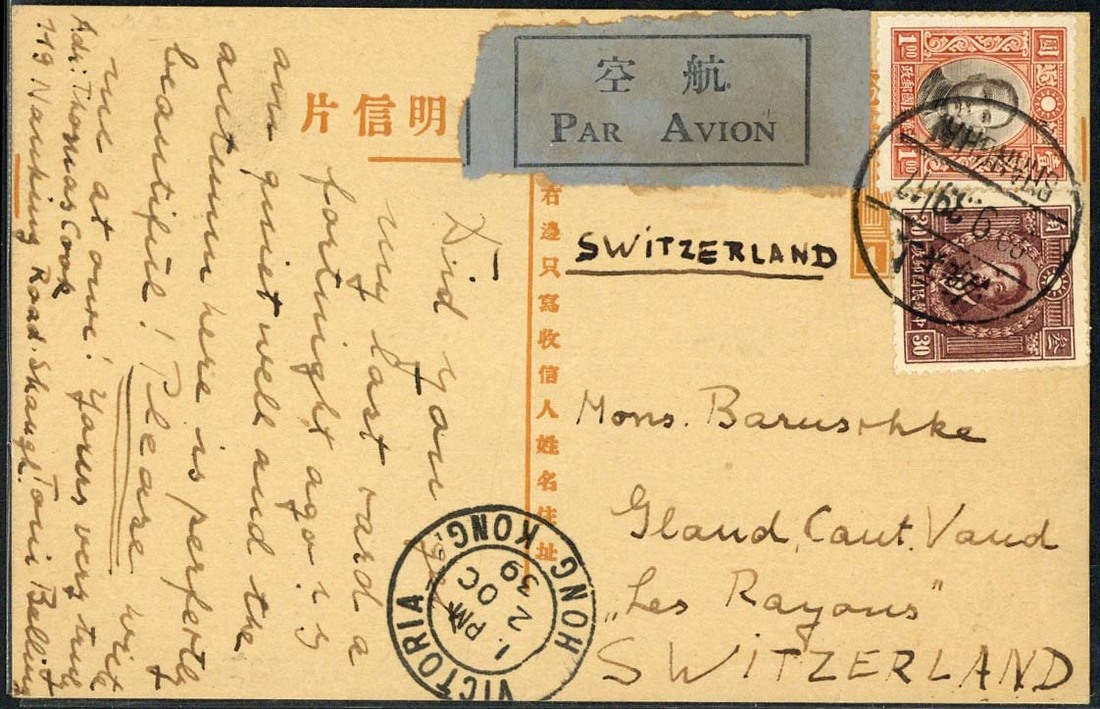 片信明
航空
PAR AVION
圓 壹
1.00 1.00
叁
30 30
右邊只寫收信人姓名住址
SWITZERLAND
Mons. Baruschke
Gland, Cant. Vaud
„Les Rayons"
SWITZERLAND
SHANGHAI
VICTORIA
HONG KONG
1. PM
2 OC
39
Did you
my last card a
fortnight ago? I
am quiet well and the
autumn here is perfectly
beautiful! Please write
me at once! Yours very truly
Adr: Thomas Cook Toni Belling
119 Nanking Road. Shangh.